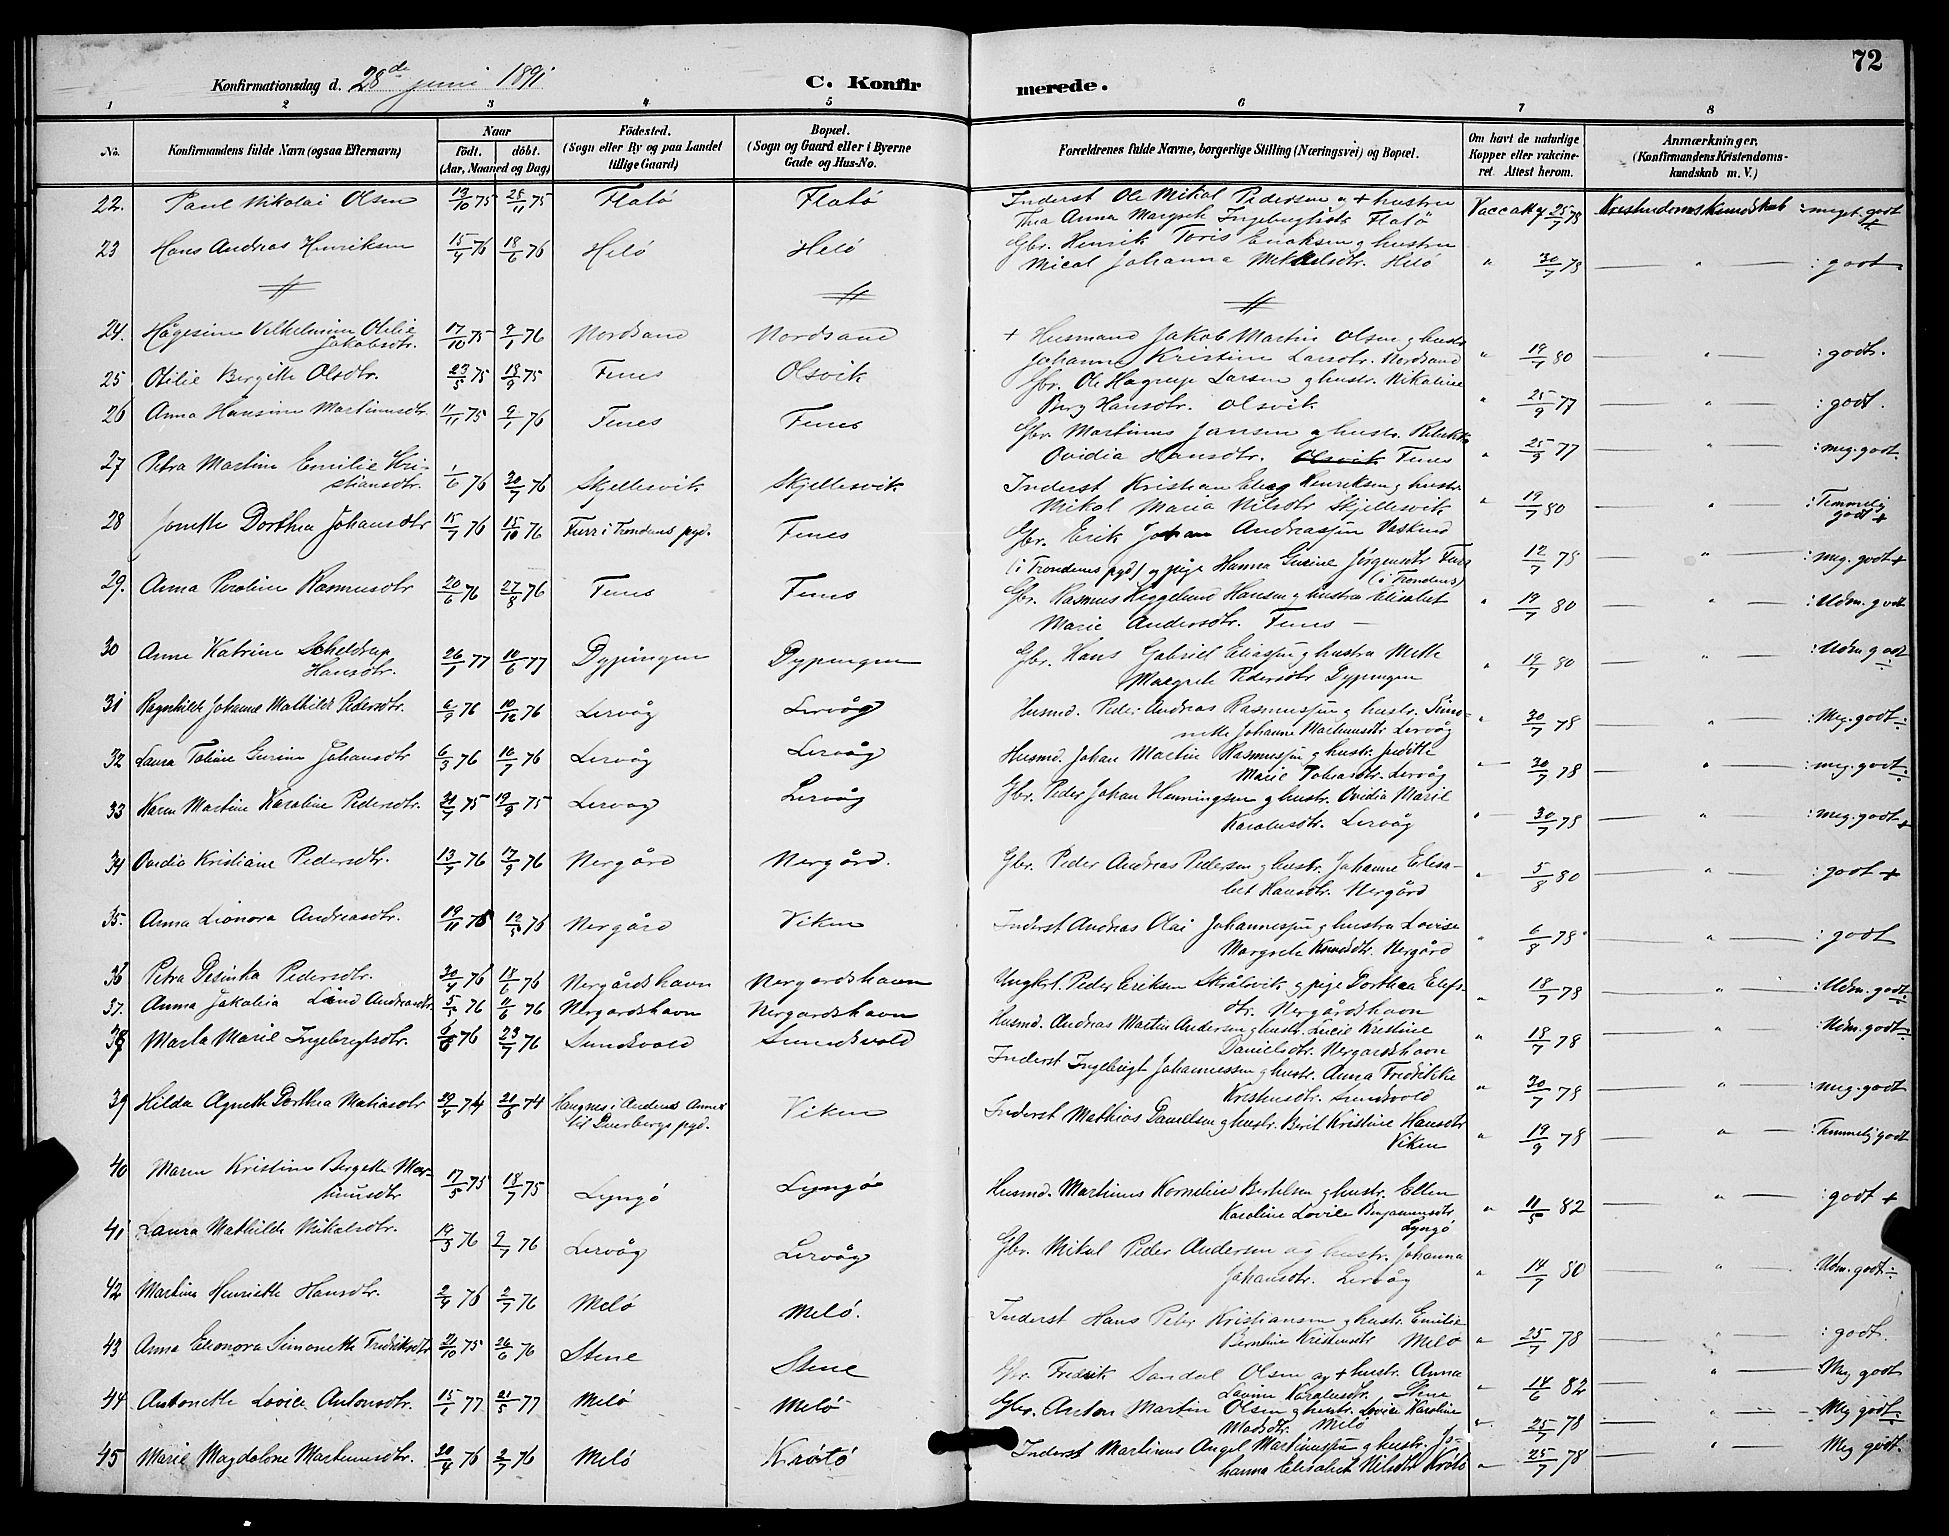 72
Konfirmationsdag d. 28de juni 1891
C. Konfirmerede.
1 2 3 4 5 6 7 8
No.
Konfirmandens fulde Navn (ogsaa Efternavn)
Naar
födt. döbt.
(Aar, Maaned og Dag)
Födested.
(Sogn eller By og paa Landet
tillige Gaard)
Bopæl.
(Sogn og Gaard eller i Byerne
Gade og Hus-No.
Forældrenes fulde Navne, borgerlige Stilling (Næringsvei) og Bopæl.
Om havt de naturlige
Kopper eller vakcine-
ret. Attest herom.
Anmærkninger.
(Konfirmandens Kristendoms-
kundskab m. V.)
22. Paul Nikolai Olsen 13/10 75 28/11 75 Flatö Flatö Inderst Ole Mikal Pedersen og + hustru
Thea Anna Margrete Ingebrigtsdtr Flatö Vacc 25/7 78 Kristendomskundskab : meget godt +
23 Hans Andreas Henriksen 15/4 76 18/6 76 Helö Helö Gbr. Henrik Toris Enoksen og hustru
Mical Johanna Mikkelsdtr. Helö " 30/7 78 " : godt
24. Hågesine Vilhelmine Otilie
Jakobsdtr. 17/10 75 9/1 76 Nordsand Nordsand + Husmand Jakob Martin Olsen g hustr.
Johanna Kristine Larsdtr. Nordsand " 19/7 80 " : godt.
25 Otilie Bergitte Olsdtr. 23/5 75 18/9 75 Fenes Olsvik Gbr. Ole Hagrup Larsen g hustr. Nikoline
Berg Hansdtr. Olsvik " 25/9 77 " : godt.
26 Anna Hansine Martinusdtr. 11/11 75 9/1 76 Fenes Fenes Gbr. Martinus Jansen g hustr. Rebekka
Ovidia Hansdtr. Olsvik Fenes " 25/9 77 " : meg. godt.
27 Petra Martine Emilie Kri-
stiansdtr. 1/6 76 30/7 76 Skjellesvik Skjellesvik Inderst Kristian Elieg Henriksen g hustr.
Mikal Maria Nilsdtr Skjellesvik " 19/7 80 " : Temmelig
godt +
28 Jonette Dorthea Johansdtr 15/7 76 15/10 76 Furr i Trondenes pgd. Fenes Gbr. Erik Johan Andreassen Vaskind
(i Trondenes pgd) og pige Hanna Gurine Jørgensdtr Furr
(i Trondenes) " 12/7 78 " : meg. godt +
29. Anna Peroline Rasmusdtr 20/6 76 27/8 76 Fenes Fenes Gbr. Rasmus Heggelund Hansen g hustru Elisabet
Marie Andersdtr. Fenes " 19/7 80 " : Udm. godt
30 Anne Katrine Scheldrup
Hansdtr. 26/1 77 10/6 77 Dypingen Dypingen Gbr. Hans Gabriel Eliassen g hustru Mette
Margrete Pedersdtr Dypingen " 19/7 80 " : Udm godt
31 Ragnhild Johanne Mathilde Pedersdtr. 6/9 76 10/12 76 Lervåg Lervåg Husmd. Peder Andreas Rasmussen g hustr. Simo-
nette Johanne Martinusdtr Lervåg " 30/7 78 " : Meg. godt
32 Laura Toline Gurine Johansdtr 6/3 76 16/7 76 Lervåg Lervåg Husmd. Johan Martin Rasmussen g hustr. Juditte
Marie Tobiasdtr. Lervåg " 30/7 78 " : meg. godt
33 Karen Martine Karoline Pedersdtr. 21/7 75 19/9 75 Lervåg Lervåg Gbr. Peder Johan Henningsen g hustr. Ovidia Marie
Karolusdtr. Lervåg " 30/7 78 " : meg. godt +
34 Ovidia Kristiane Pedersdtr. 13/7 76 17/9 76 Nergård Nergård. Gbr. Peder Andreas Pedersen g hustr. Johanne Elisa-
bet Hansdtr. Nergård " 5/8 80 " : godt +
35. Anna Lionora Andreasdtr. 19/11 75 12/5 76 Nergård Viken Inderst Andreas Olai Johannessen g hustru Lovise
Margrete Knudsdtr. Nergård " 6/8 78 " : godt
36 Petra Desinta Pedersdtr. 30/4 76 18/6 76 Nergårdshavn Nergårdshavn Ungkrl. Peder Eriksen Skrålsvik g pige Dorthea Elefs-
dtr. Nergårdshavn " 18/7 78 " : Udm. godt
37. Anna Jakobia Lind Andreasdtr 5/5 76 11/6 76 Nergårdshavn Nergardshavn Husmd. Andreas Martin Andersen g hustr. Lucie Kristine
Danielsdtr. Nergårdshavn " 18/7 78 " : Udm. godt
38 Marta Marie Ingebrigtsdtr. 6/6 76 23/7 76 Sundsvold Sundsvold Inderst Ingebrigt Johannessen g hustr. Anna Fredrikke
Kristensdtr. Sundsvold " 30/7 78 " : meg. godt
39 Hilda Agneth Dorthea Matiasdtr 29/4 74 21/6 74 Haugnes i Andenes Annex
til Dverbergs pgd. Viken Inderst Mathias Danielsen g hustr. Berit Kristine Hansdtr
Viken " 19/9 78 " : Temmelig godt
40 Maren Kristine Bergette Mar-
tinusdtr 17/5 75 18/7 75 Lyngö Lyngö Husmd. Martinus Kornelius Bertelsen g hustr. Ellen
Karoline Lovise Benjaminsdtr
Lyngö " 11/5 82 " : godt +
41 Laura Mathilde Mikalsdtr. 19/3 76 2/7 76 Lervåg Lervåg Gbr. Mikal Peder Andersen og hustr. Johanna
Johansdtr. Lervåg " 14/7 80 " : Udm. godt
42 Martine Henriette Hansdtr. 2/4 76 2/7 76 Melö Melö. Inderst Hans Peter Kristiansen g hustr. Emilie
Berntine Kristensdtr Melö " 25/7 78 " : godt.
43 Anna Elionora Simonette Fredriksdtr 21/10 75 26/6 76 Stene Stene Gbr. Fredrik Sandal Olsen og + hustr. Anna
Lavine Karolusdtr. Stene " 14/6 82 " : Meg godt
44 Antonette Lovise Antonsdtr. 15/1 77 21/5 77 Melö Melö Gbr. Anton Martin Olsen g hustr. Lovise Karoline
Madsdtr. Melö " 25/7 78 " : Meg godt
45 Marie Magdalene Martinusdtr. 20/4 76 2/7 76 Melö Kröttö Inderst Martinus Angel Martinussen g hustr. Jo-
hanna Elisabet Nilsdtr Kröttö " 25/7 78 " : Meg godt.